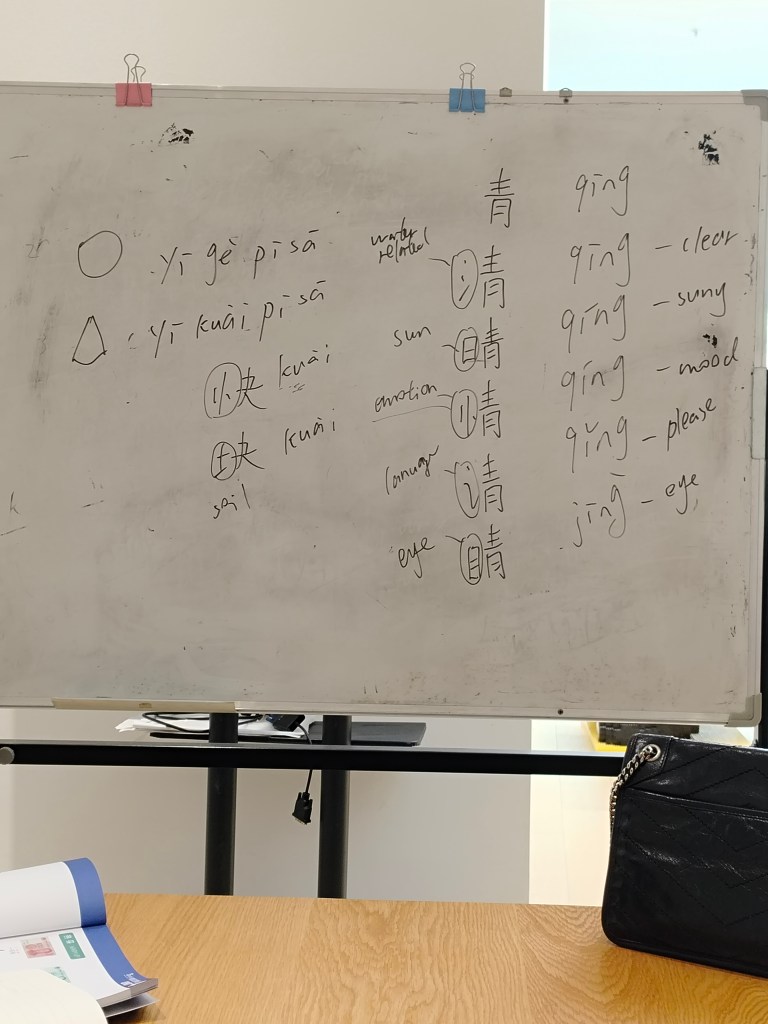 yī gè pī sā
yī kuài pī sā
快 kuài
块 kuài
soil
青 qīng
water related 清 qīng - clear
sun 晴 qīng - suny
emotion 情 qīng - mood
请 qǐng - please
eye 睛 jīng - eye
k